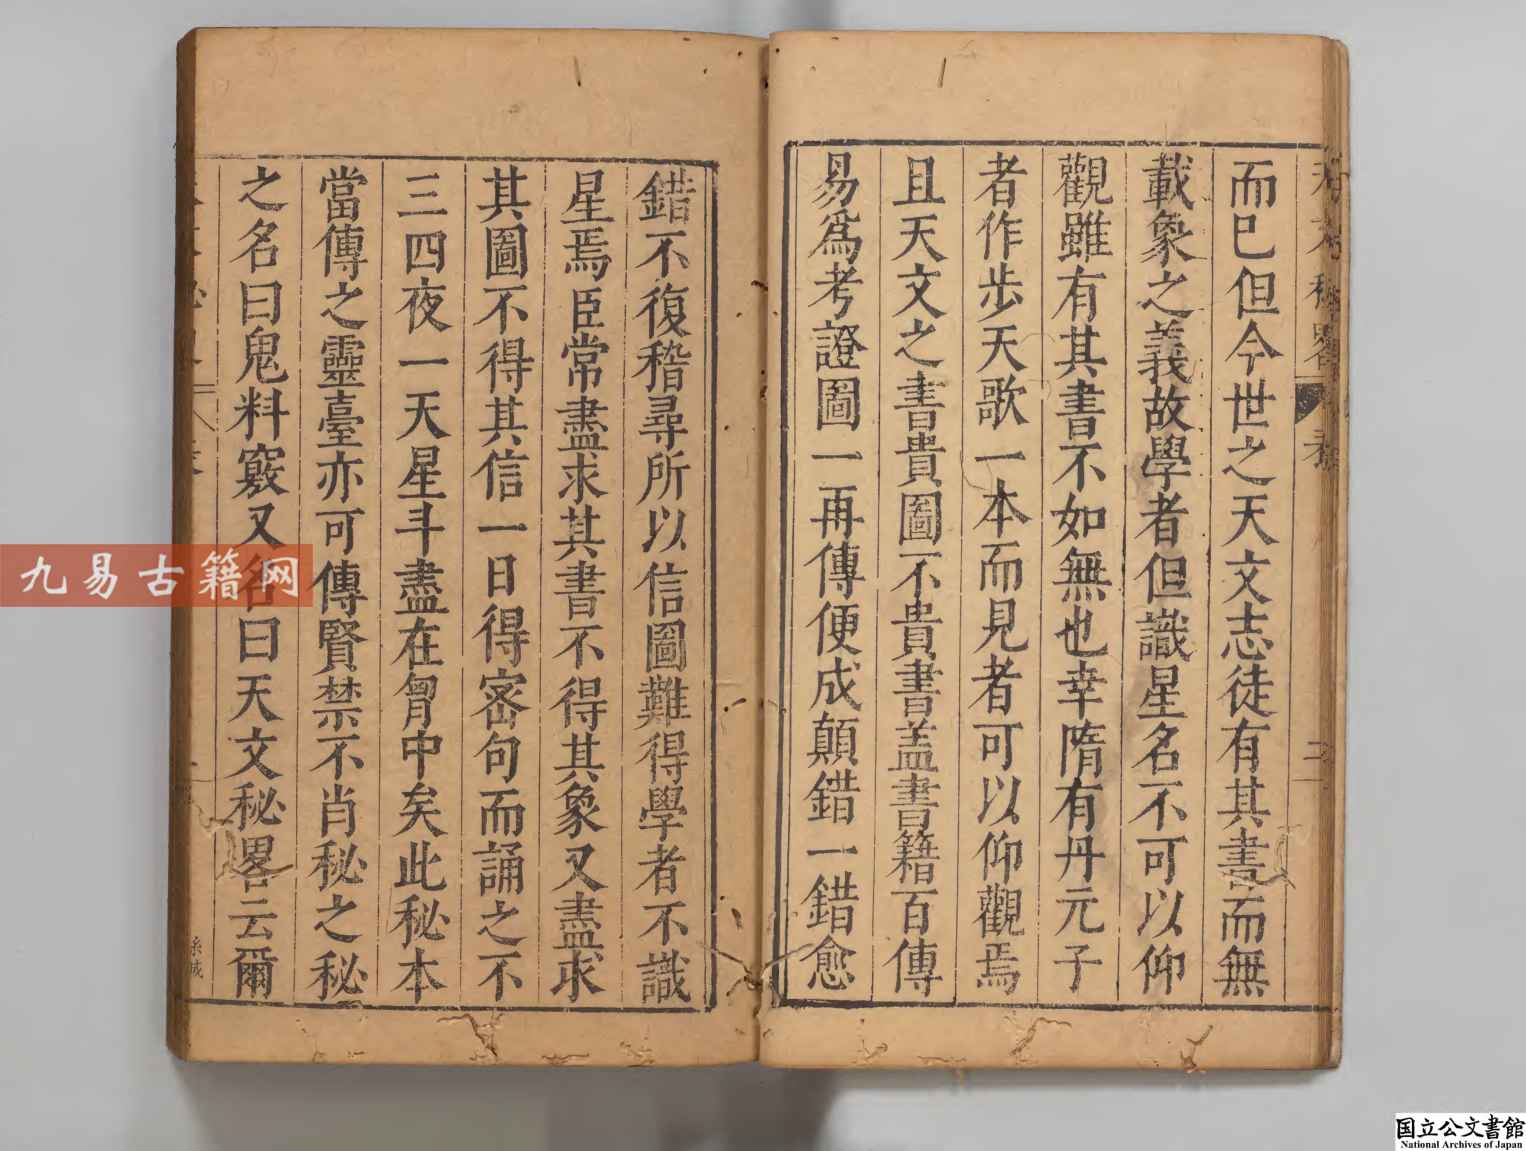 而已但今世之天文志徒有其書而無
載象之義故學者但識星名不可以仰
觀雖有其書不如無也幸隋有丹元子
者作步天歌一本而見者可以仰觀焉
且天文之書貴圖不貴書盖書籍百傳
易爲考證圖一再傳便成顛錯一錯愈
錯不復稽尋所以信圖難得學者不識
星焉臣常盡求其書不得其象又盡求
其圖不得其信一日得宻句而誦之不
三四夜一天星斗盡在胷中矣此秘本
當傳之靈臺亦可傳賢禁不肖秘之秘
之名曰鬼料竅又名曰天文秘畧云爾
九易古籍网
国立公文書館
National Archives of Japan